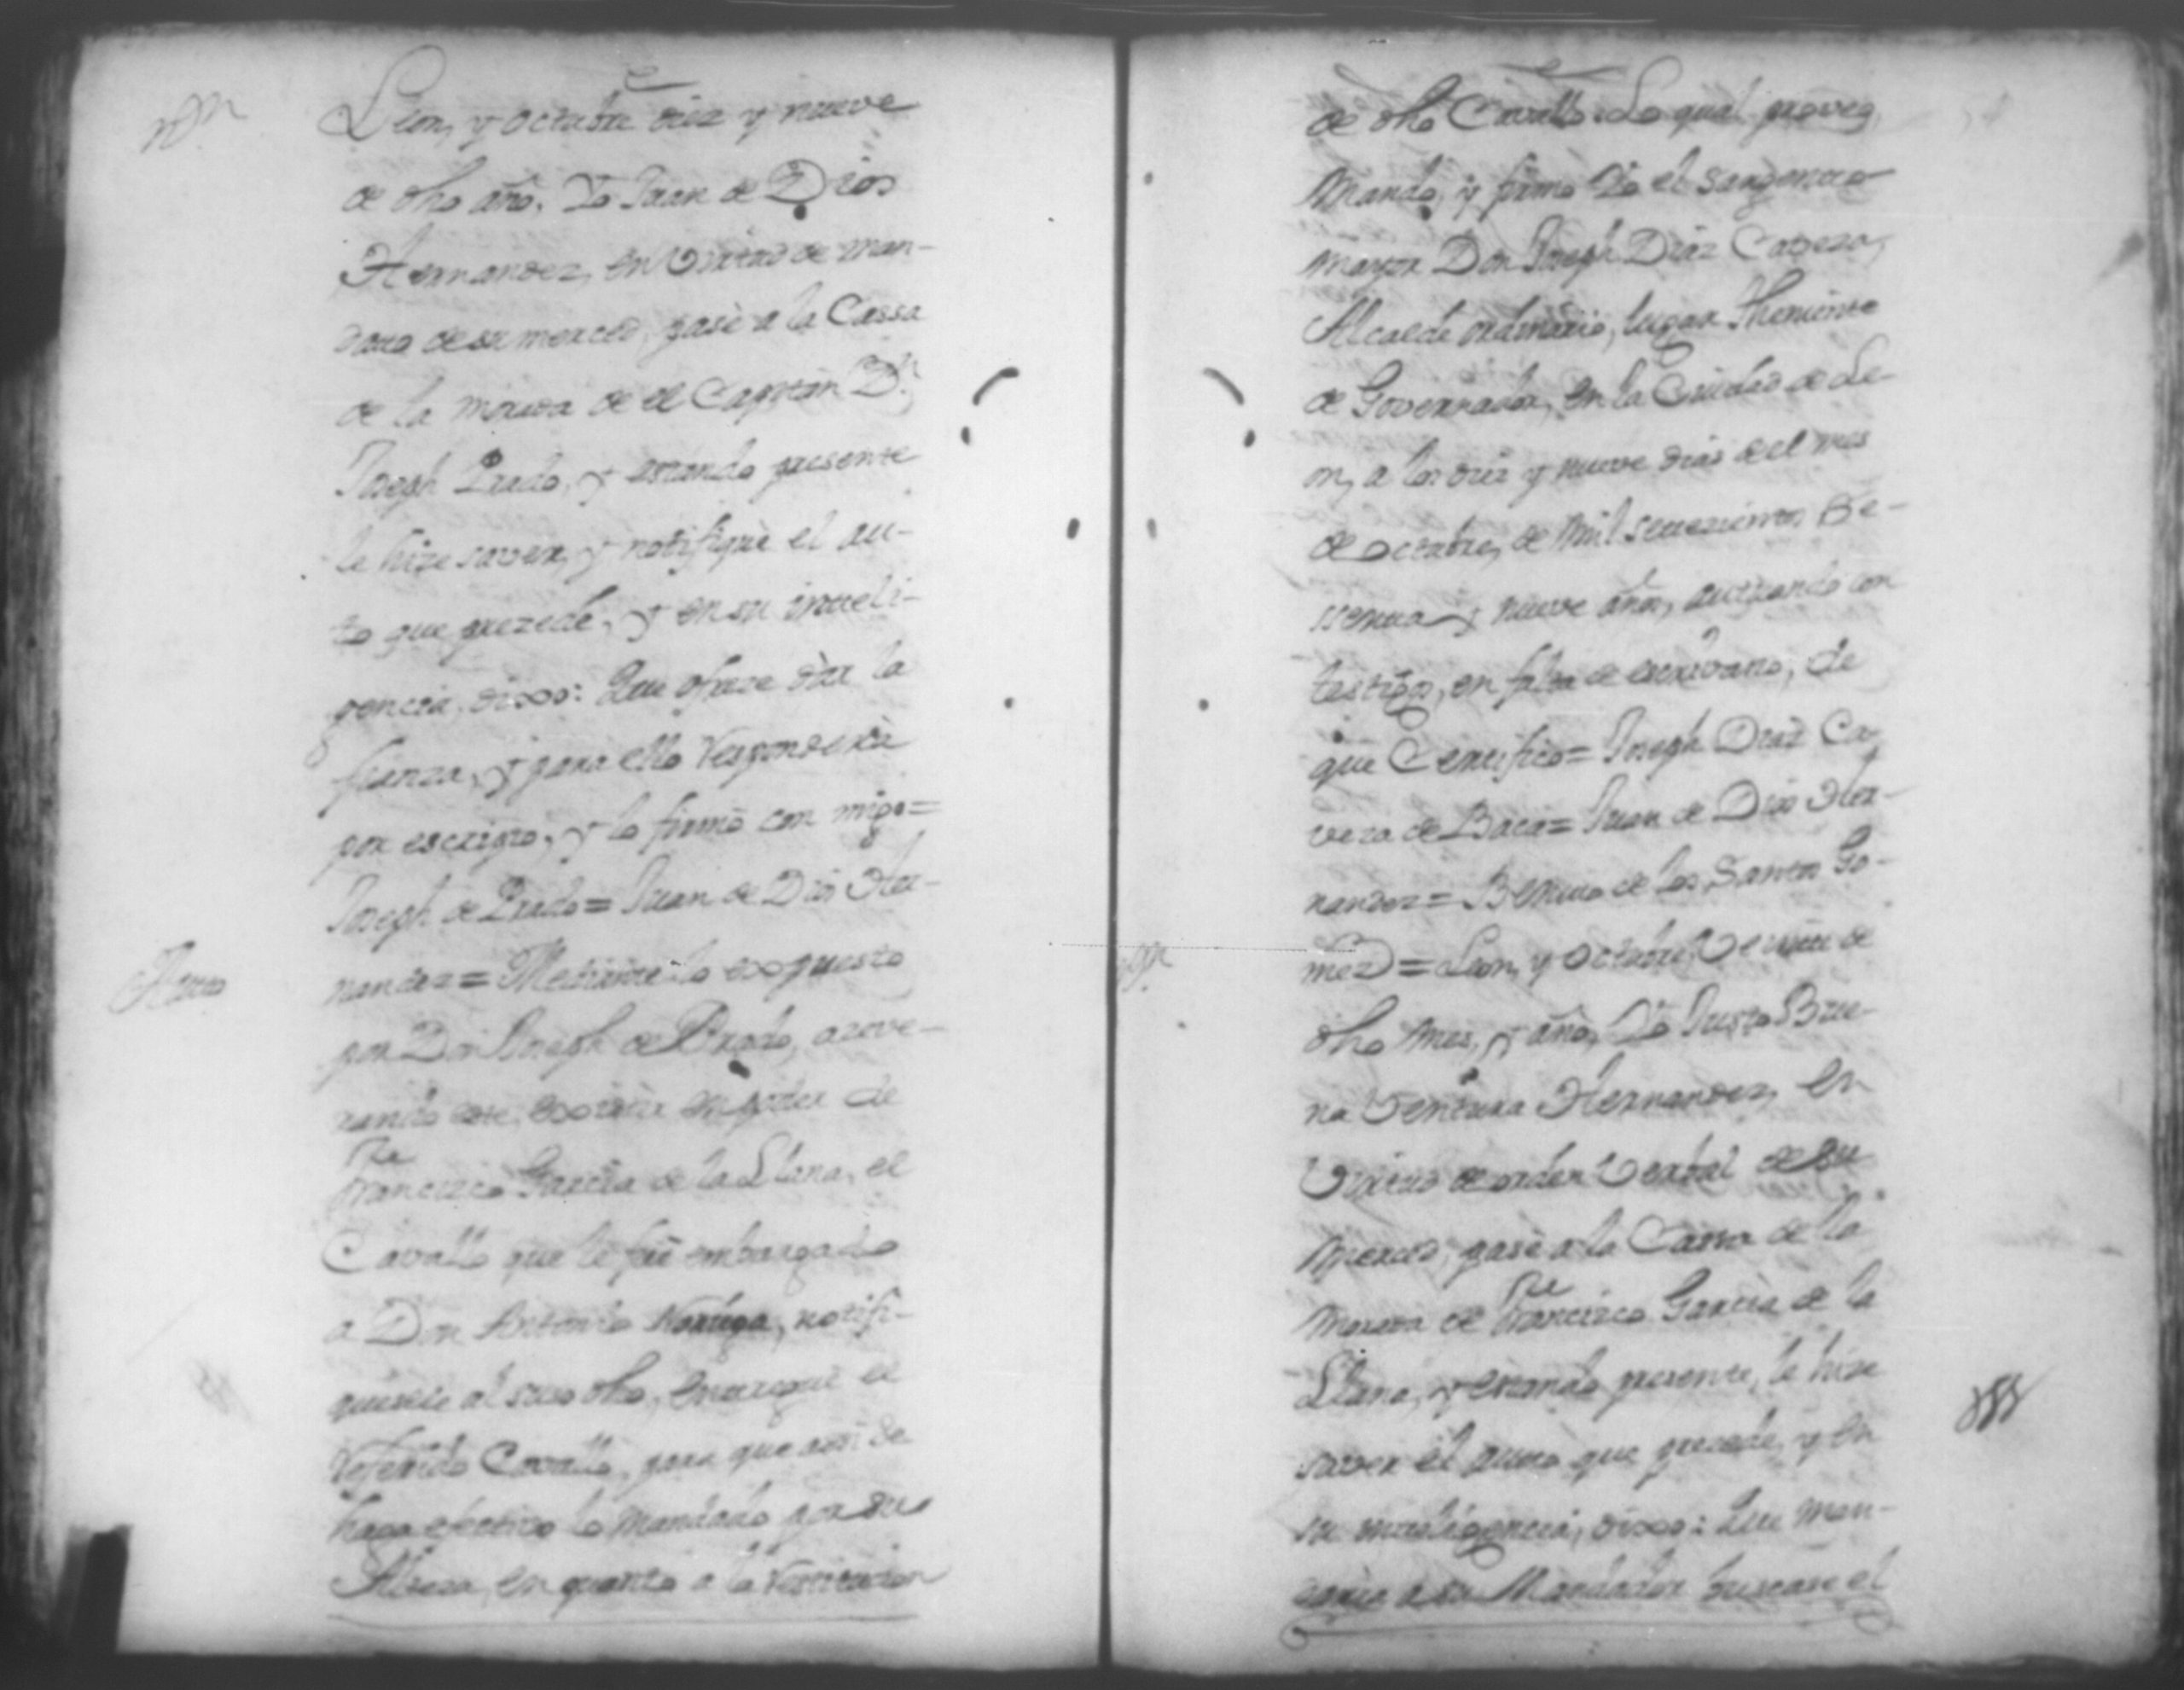 Leon, y octubre diez y nueve
de dho año. Yo Juan de Dios
Hernandez, en Virtud de man-
dato de su merced, pasè a la Cassa
de la morada de el Capitan Dn
Joseph Prado, y estando presente
le hize saver, y notifiquè el au-
to que prezede, y en su inteli-
gencia, dixo: Que ofreze dàr la
fianza, y para ello Responderà
por escripto, y lo firmò con migo=
Joseph de Prado= Juan de Dios Her-
Auto
nandez= Mediante lo expuesto
por Don Joseph de Prado, aseve-
rando este, existir en poder de
Franco
Francizco Garcia de la Llana, el
Cavallo que le fuè embargado
a Don Antonio Noriega, notifi-
quesele al suso dho, entregue el
Referido Cavallo, para que asi se
haga efectivo lo mandado por su
Alteza, en quanto a la Restitucion
de dho Cavallo. Lo qual proveo,
Mando, y firmo Yo el Sargento
Mayor Don Joseph Diaz Cabeza,
Alcalde ordinario, lugar Theniente
de Governador, en la Ciudad de Le-
on, a los diez y nueve dias de el mes
de octubre, de Mil setezientos se-
ssenta y nueve años, autuando con
testigos, en falta de escrivano, de
que Certifico= Joseph Diaz Ca-
veza de Baca= Juan de Dios Her-
nandez= Benito de los Santos Go-
mez= Leon, y Octubre Veinte de
dho Mes, y año, Yo Justo Bue-
na Ventura Hernandez, en
Virtud de orden Verbal de su
Merced, pasè a la Cassa de la
Franco
Morada de Francizco Garcia de la
Llana, y estando presente, le hize
saver el auto que precede, y en
su inteligencia, dixo: Que man-
daria a su Mandador buscase el